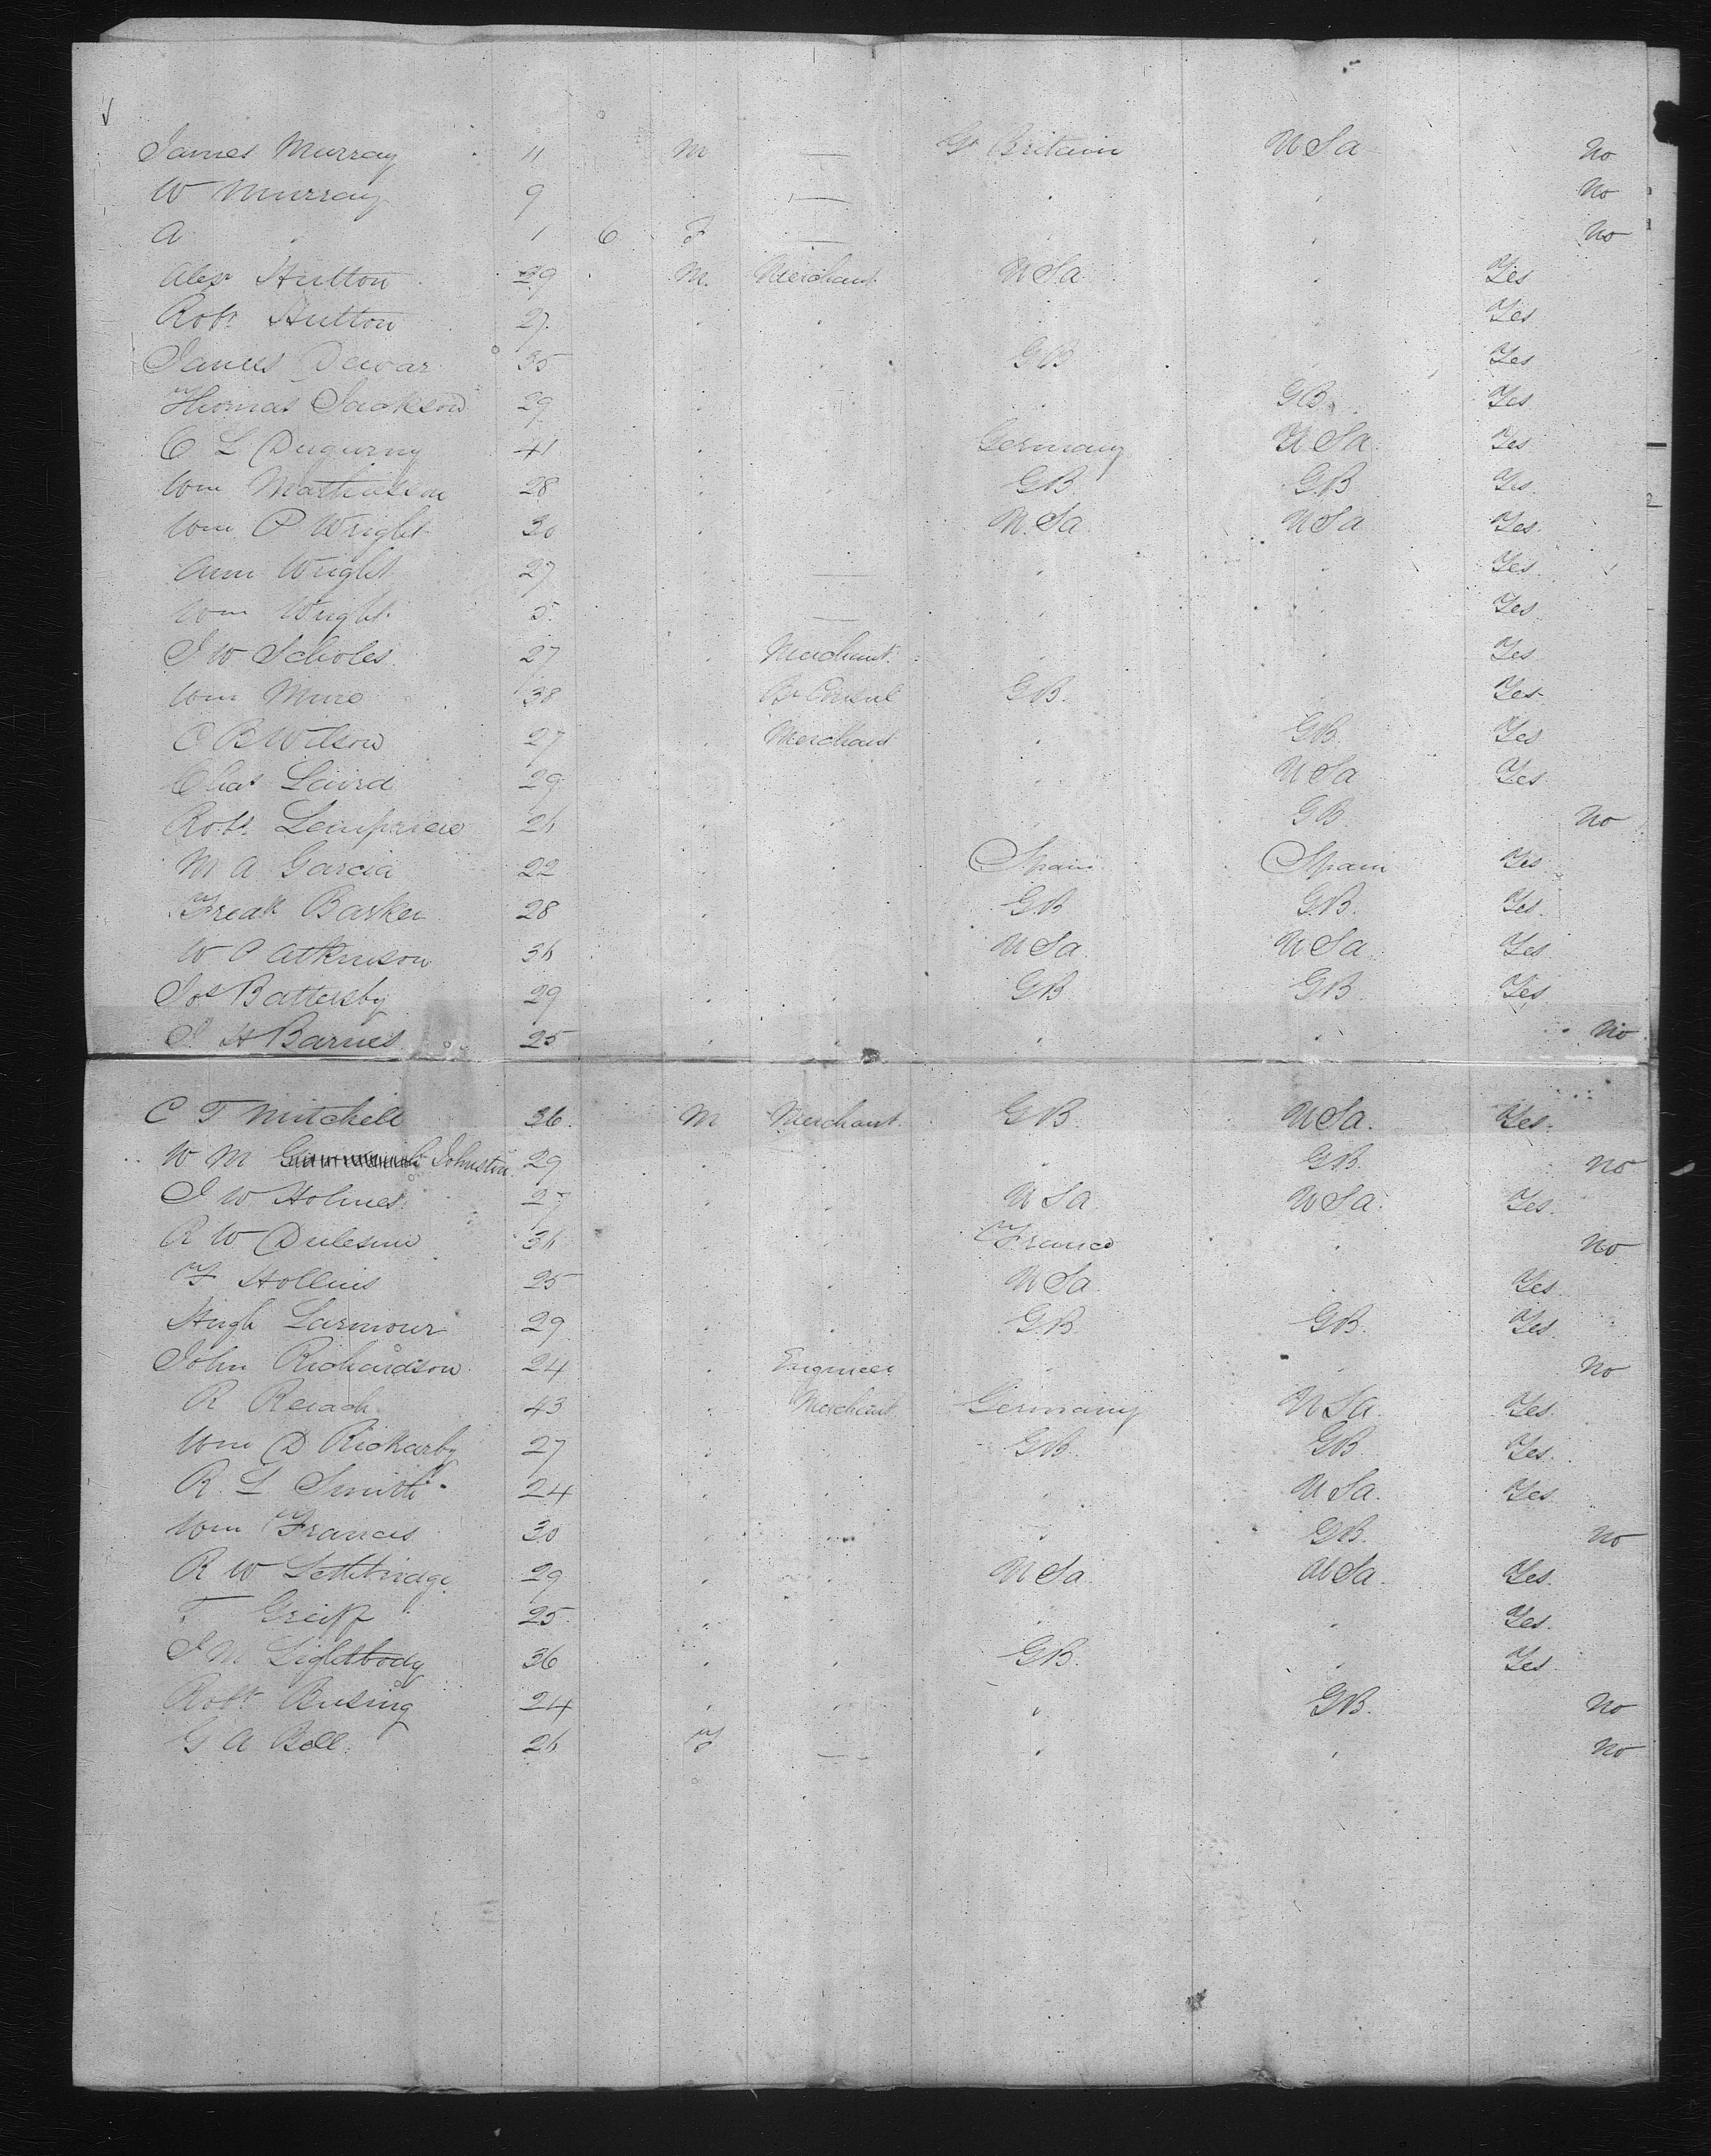 James Murray 11 M — Gt Britain USa No
W Murray 9 " — " " No
A " 1 6 F — " " No
Alexr Hutton 29 M. Merchant USa " Yes
Robt Hutton 27 " " " " Yes
James Dewar 35 " " GB " Yes
Thomas Jackson 29 " " " GB Yes
C L Dugurny 41 " " Germany USa Yes
Wm Mathieson 28 " " GB GB Yes
Wm P Wright 30 " " USa USa Yes
Ann Wright 27 — " " Yes
Wm Wright 5 — " " Yes
J W Scholes 27 " Merchant " " Yes
Wm Mure 38 Br Consul GB " Yes
C B Wilson 27 " Merchant " GB Yes
Chas Laird 29 " " " USa Yes
Robt Lempriere 26 " " " GB No
M A Garcia 22 " " Spain Spain Yes
Fredk Barker 28 " " GB GB Yes
W P Atkinson 36 " " USa USa Yes
Jos Battersby 29 " " GB GB Yes
J H Barnes 25 " " " " No
C T Mitchell 36 M Merchant GB USa Yes
W M Johnston 29 " " " GB No
J W Holmes 27 " " USa USa Yes
R W 36 " " France " No
F Hollins 25 " " USa " Yes
Hugh Larmour 29 " " GB GB Yes
John Richardson 24 " Engineer " " No
R Reiach 43 " Merchant Germany USa Yes
Wm D Rickarby 27 " " GB GB Yes
R L Smith 24 " " " USa Yes
Wm Francis 30 " " " GB No
R W Lethbridge 29 " " USa USa Yes
T Greiff 25 " " " " Yes
J M Lightbody 36 " " GB " Yes
Robt Busing 24 " " " GB No
G A Bell 26 F — " " No